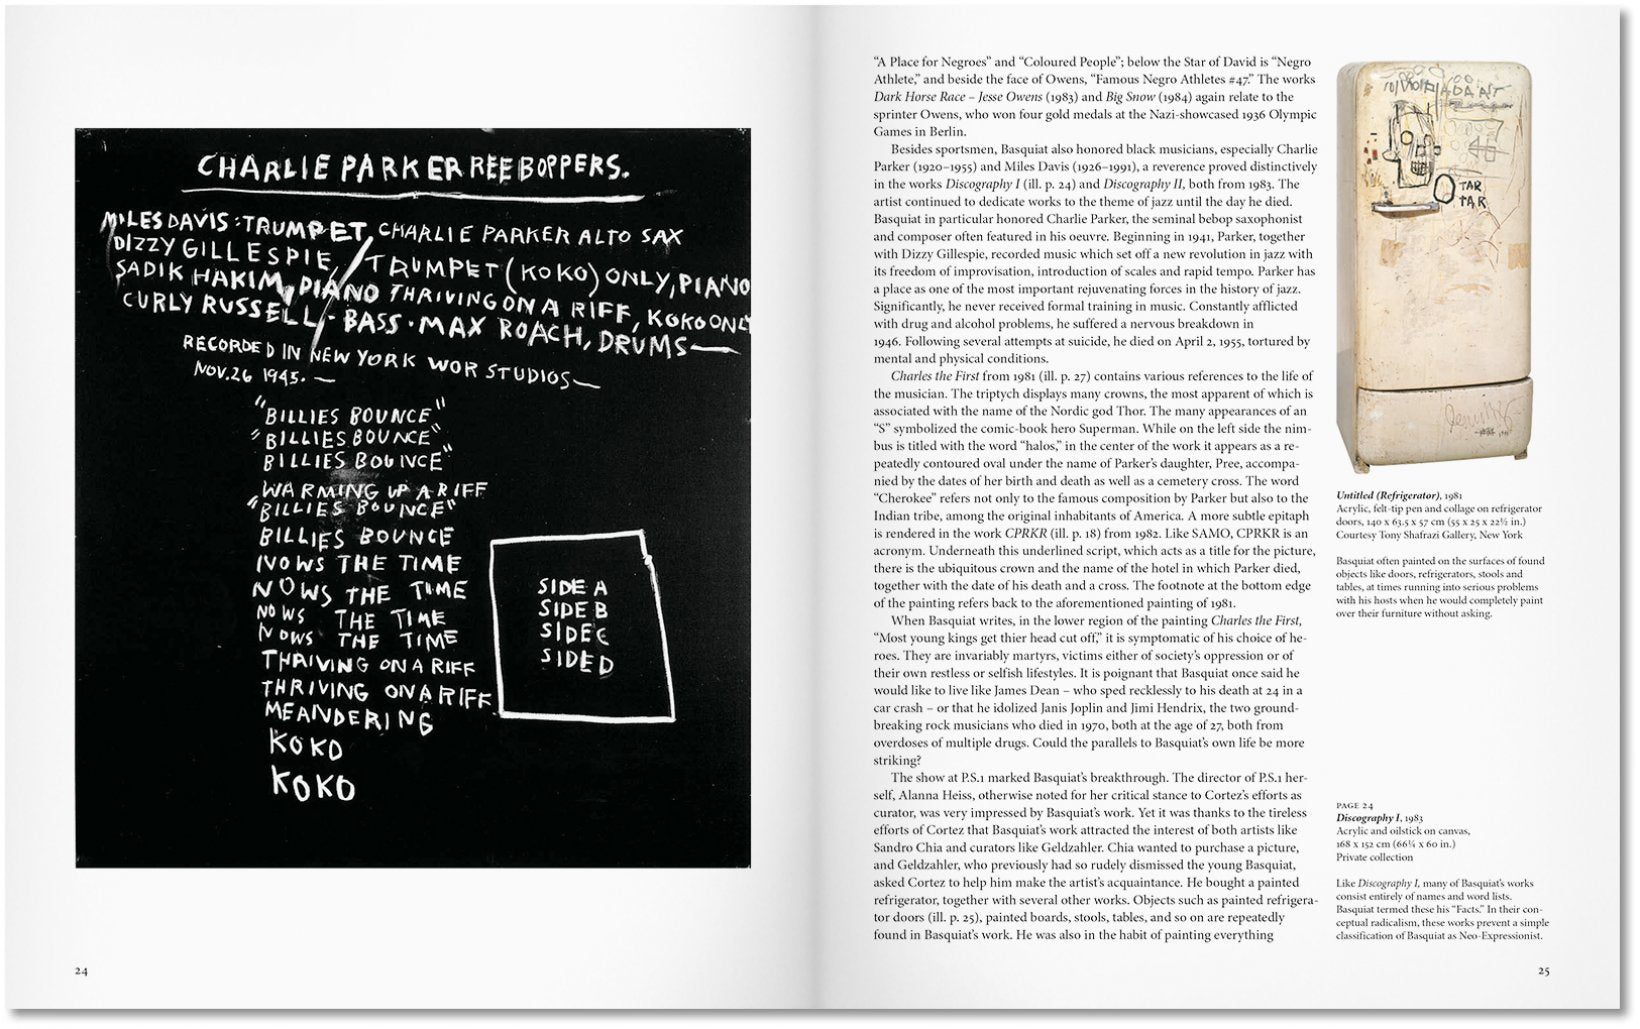 CHARLIE PARKER REEBOPPERS.
MILES DAVIS · TRUMPET, CHARLIE PARKER ALTO SAX
DIZZY GILLESPIE / TRUMPET (KOKO) ONLY, PIANO
SADIK HAKIM, PIANO THRIVING ON A RIFF, KOKO ONLY
CURLY RUSSELL · BASS · MAX ROACH, DRUMS—
RECORDED IN NEW YORK WOR STUDIOS—
NOV. 26 1945. —
"BILLIES BOUNCE"
"BILLIES BOUNCE"
BILLIES BOUNCE"
WARMING UP A RIFF
"BILLIES BOUNCE"
BILLIES BOUNCE
NOWS THE TIME
NOWS THE TIME
NOWS THE TIME
NOWS THE TIME
THRIVING ON A RIFF
THRIVING ON A RIFF
MEANDERING
KOKO
KOKO
SIDE A
SIDE B
SIDE C
SIDE D
24
“A Place for Negroes” and “Coloured People”; below the Star of David is “Negro
Athlete,” and beside the face of Owens, “Famous Negro Athletes #47.” The works
Dark Horse Race – Jesse Owens (1983) and Big Snow (1984) again relate to the
sprinter Owens, who won four gold medals at the Nazi-showcased 1936 Olympic
Games in Berlin.
Besides sportsmen, Basquiat also honored black musicians, especially Charlie
Parker (1920–1955) and Miles Davis (1926–1991), a reverence proved distinctively
in the works Discography I (ill. p. 24) and Discography II, both from 1983. The
artist continued to dedicate works to the theme of jazz until the day he died.
Basquiat in particular honored Charlie Parker, the seminal bebop saxophonist
and composer often featured in his oeuvre. Beginning in 1941, Parker, together
with Dizzy Gillespie, recorded music which set off a new revolution in jazz with
its freedom of improvisation, introduction of scales and rapid tempo. Parker has
a place as one of the most important rejuvenating forces in the history of jazz.
Significantly, he never received formal training in music. Constantly afflicted
with drug and alcohol problems, he suffered a nervous breakdown in
1946. Following several attempts at suicide, he died on April 2, 1955, tortured by
mental and physical conditions.
Charles the First from 1981 (ill. p. 27) contains various references to the life of
the musician. The triptych displays many crowns, the most apparent of which is
associated with the name of the Nordic god Thor. The many appearances of an
“S” symbolized the comic-book hero Superman. While on the left side the nim-
bus is titled with the word “halos,” in the center of the work it appears as a re-
peatedly contoured oval under the name of Parker’s daughter, Pree, accompa-
nied by the dates of her birth and death as well as a cemetery cross. The word
“Cherokee” refers not only to the famous composition by Parker but also to the
Indian tribe, among the original inhabitants of America. A more subtle epitaph
is rendered in the work CPRKR (ill. p. 18) from 1982. Like SAMO, CPRKR is an
acronym. Underneath this underlined script, which acts as a title for the picture,
there is the ubiquitous crown and the name of the hotel in which Parker died,
together with the date of his death and a cross. The footnote at the bottom edge
of the painting refers back to the aforementioned painting of 1981.
When Basquiat writes, in the lower region of the painting Charles the First,
“Most young kings get thier head cut off,” it is symptomatic of his choice of he-
roes. They are invariably martyrs, victims either of society’s oppression or of
their own restless or selfish lifestyles. It is poignant that Basquiat once said he
would like to live like James Dean – who sped recklessly to his death at 24 in a
car crash – or that he idolized Janis Joplin and Jimi Hendrix, the two ground-
breaking rock musicians who died in 1970, both at the age of 27, both from
overdoses of multiple drugs. Could the parallels to Basquiat’s own life be more
striking?
The show at P.S.1 marked Basquiat’s breakthrough. The director of P.S.1 her-
self, Alanna Heiss, otherwise noted for her critical stance to Cortez’s efforts as
curator, was very impressed by Basquiat’s work. Yet it was thanks to the tireless
efforts of Cortez that Basquiat’s work attracted the interest of both artists like
Sandro Chia and curators like Geldzahler. Chia wanted to purchase a picture,
and Geldzahler, who previously had so rudely dismissed the young Basquiat,
asked Cortez to help him make the artist’s acquaintance. He bought a painted
refrigerator, together with several other works. Objects such as painted refrigera-
tor doors (ill. p. 25), painted boards, stools, tables, and so on are repeatedly
found in Basquiat’s work. He was also in the habit of painting everything
TAR
TAR
Untitled (Refrigerator), 1981
Acrylic, felt-tip pen and collage on refrigerator
doors, 140 x 63.5 x 57 cm (55 x 25 x 22½ in.)
Courtesy Tony Shafrazi Gallery, New York
Basquiat often painted on the surfaces of found
objects like doors, refrigerators, stools and
tables, at times running into serious problems
with his hosts when he would completely paint
over their furniture without asking.
PAGE 24
Discography I, 1983
Acrylic and oilstick on canvas,
168 x 152 cm (66¼ x 60 in.)
Private collection
Like Discography I, many of Basquiat’s works
consist entirely of names and word lists.
Basquiat termed these his “Facts.” In their con-
ceptual radicalism, these works prevent a simple
classification of Basquiat as Neo-Expressionist.
25